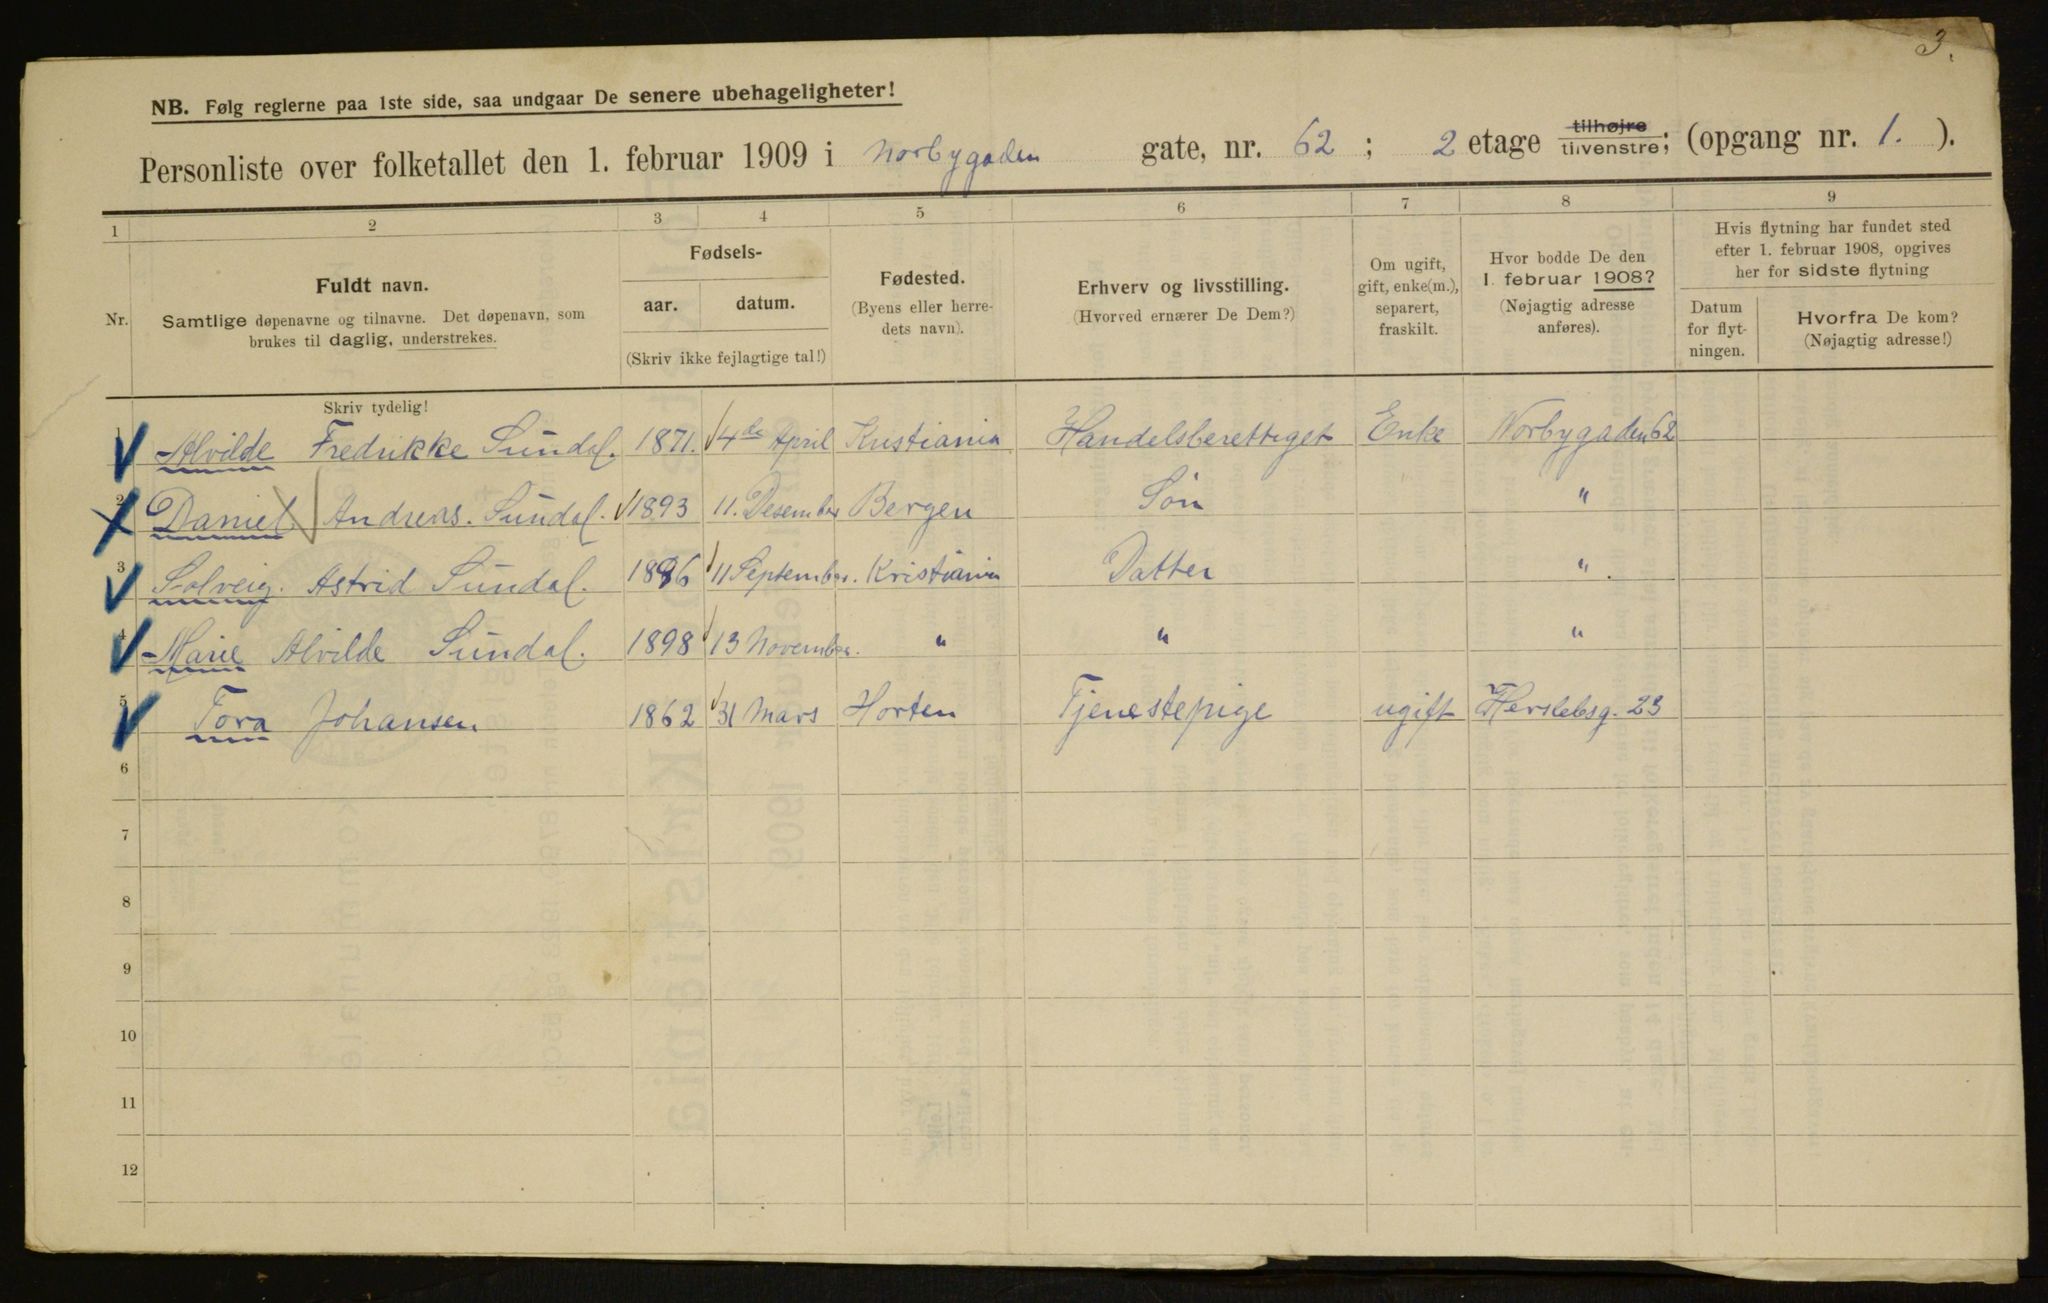 3.
NB. Følg reglerne paa 1ste side, saa undgaar De senere ubehageligheter!
Personliste over folketallet den 1. februar 1909 i Norbygaden gate, nr. 62 ; 2 etage tilhøjre tilvenstre; (opgang nr. 1. ).
1 2 3 4 5 6 7 8 9
Nr.
Fuldt navn.
Samtlige døpenavne og tilnavne. Det døpenavn, som
brukes til daglig, understrekes.
Fødsels-
aar. datum.
(Skriv ikke fejlagtige tal!)
Fødested.
(Byens eller herre-
dets navn).
Erhverv og livsstilling.
(Hvorved ernærer De Dem?)
Om ugift,
gift, enke(m.),
separert,
fraskilt.
Hvor bodde De den
1. februar 1908?
(Nøjagtig adresse
anføres).
Hvis flytning har fundet sted
efter 1. februar 1908, opgives
her for sidste flytning
Datum
for flyt-
ningen.
Hvorfra De kom?
(Nøjagtig adresse!)
Skriv tydelig!
1 Alvilde Fredrikke Sundal. 1871. 4de April Kristiania Handelsberettiget Enke Norbygaden 62
2 Daniel Andreas. Sundal. 1893 11. Desember Bergen Søn "
3 Solveig. Astrid Sundal. 1896 11 September. Kristiania Datter "
4 Marie Alvilde Sundal. 1898 13 November. " " "
5 Tora Johansen 1862 31 Mars Horten Tjenestepige ugift Herslebsg. 23
6
7
8
9
10
11
12